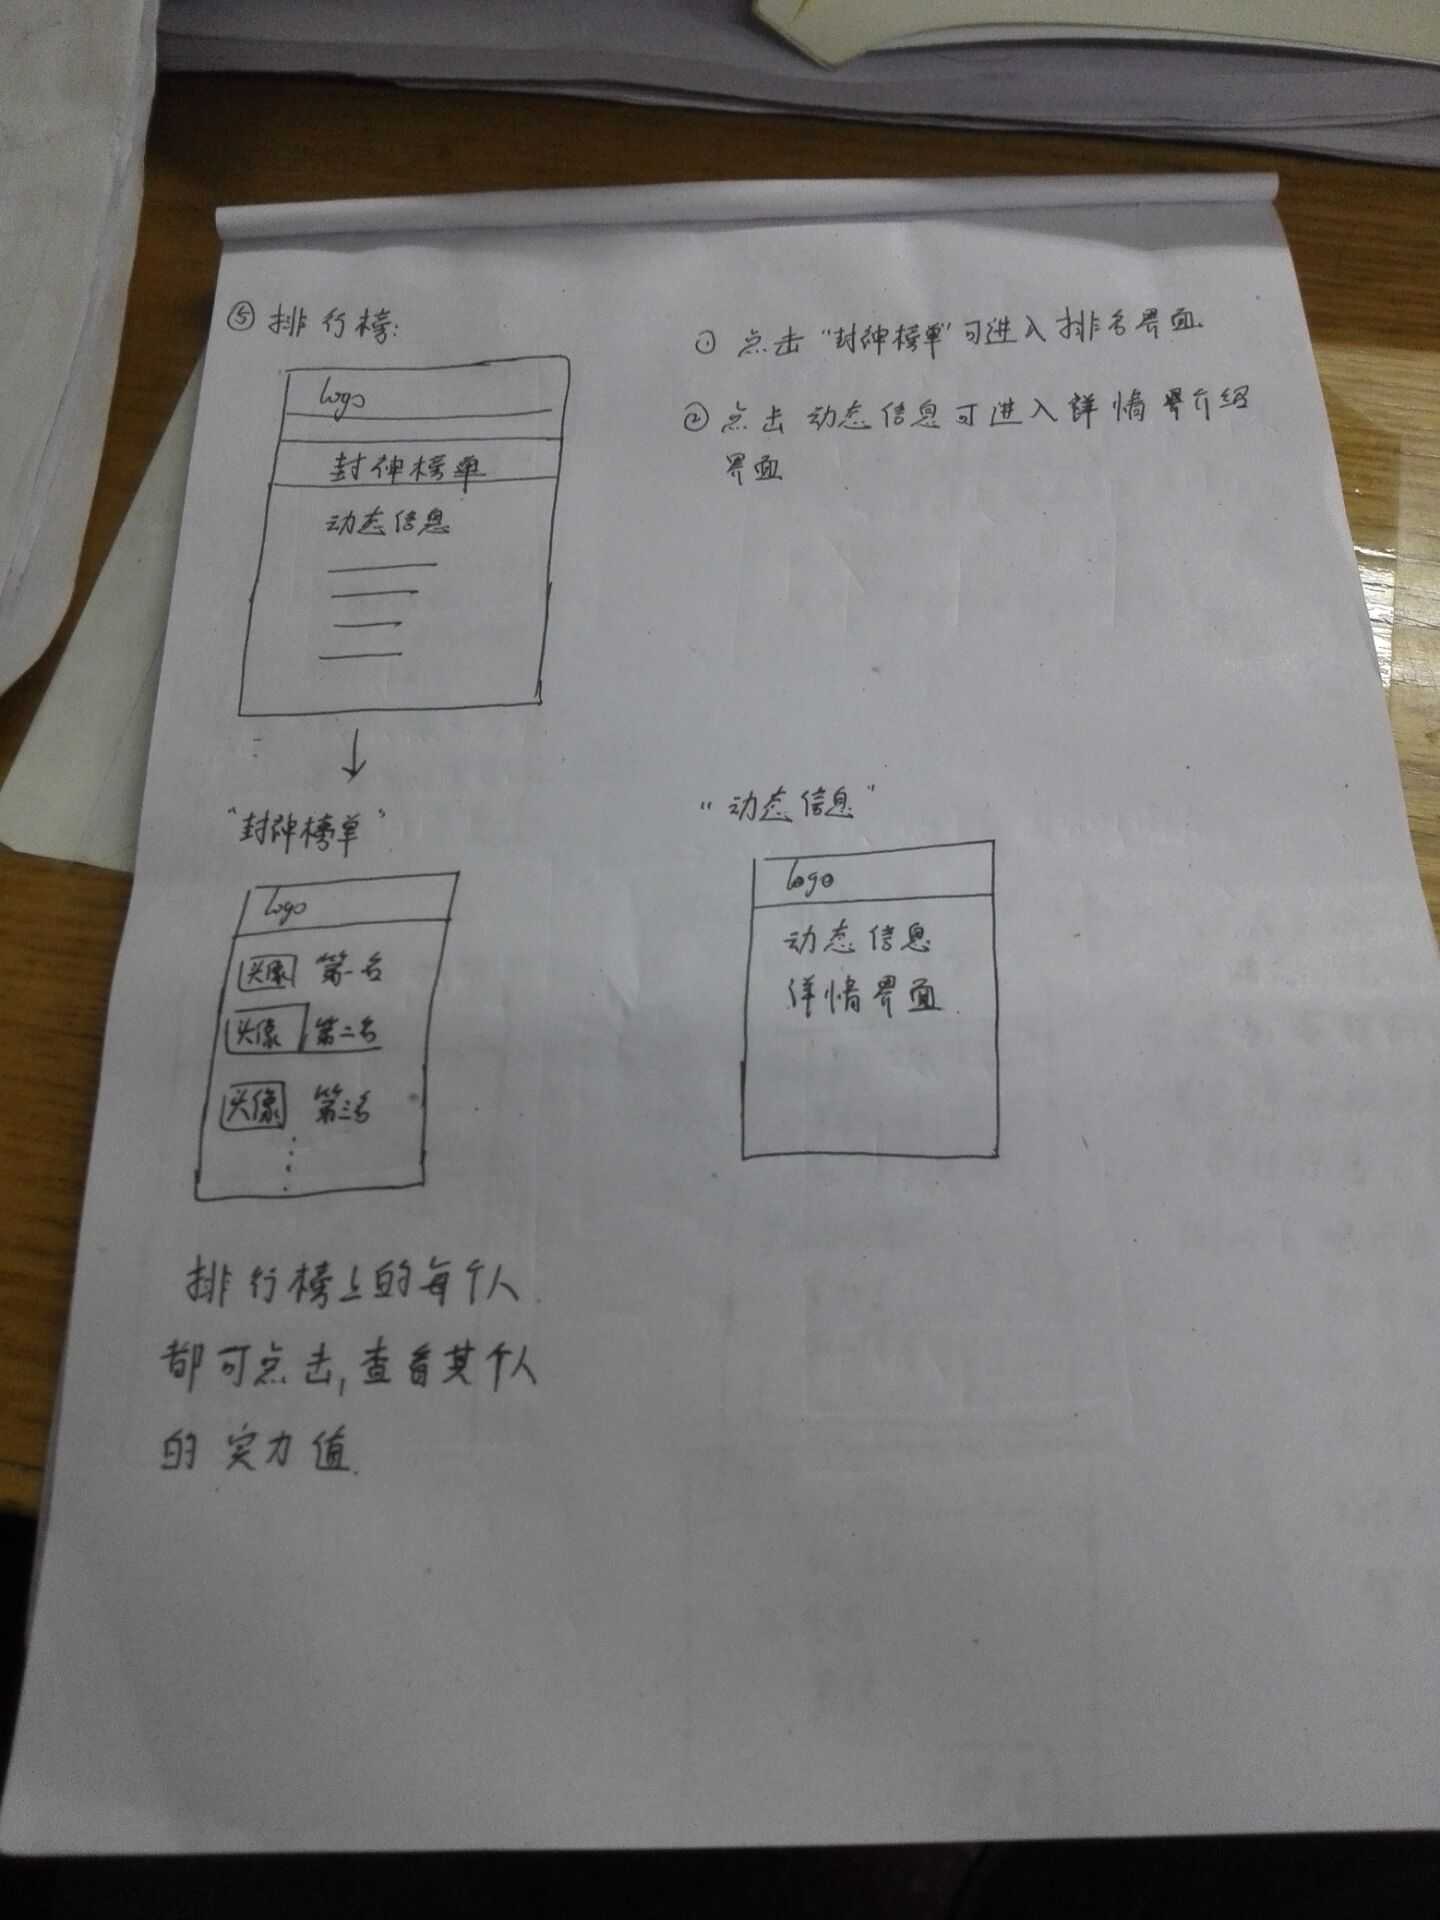 ⑤ 排行榜:
logo
封神榜单
动态信息
① 点击"封神榜单"可进入排名界面
② 点击动态信息可进入详情界介绍
界面
"封神榜单"
logo
头像 第一名
头像 第二名
头像 第三名
排行榜上的每个人
都可点击,查看其个人
的实力值.
"动态信息"
logo
动态信息
详情界面